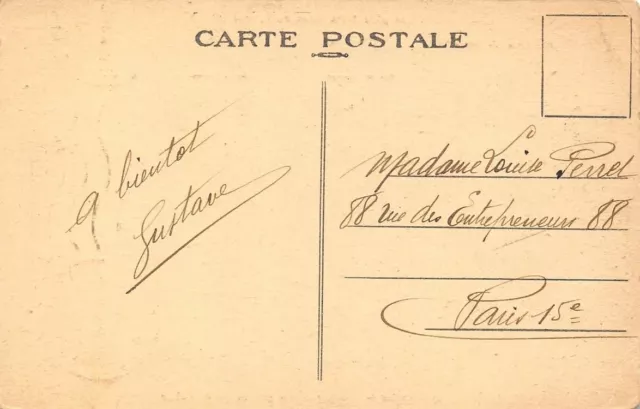 CARTE POSTALE
A bientot
Gustave
Madame Louise Perret
88 rue des Entrepreneurs 88
Paris 15e